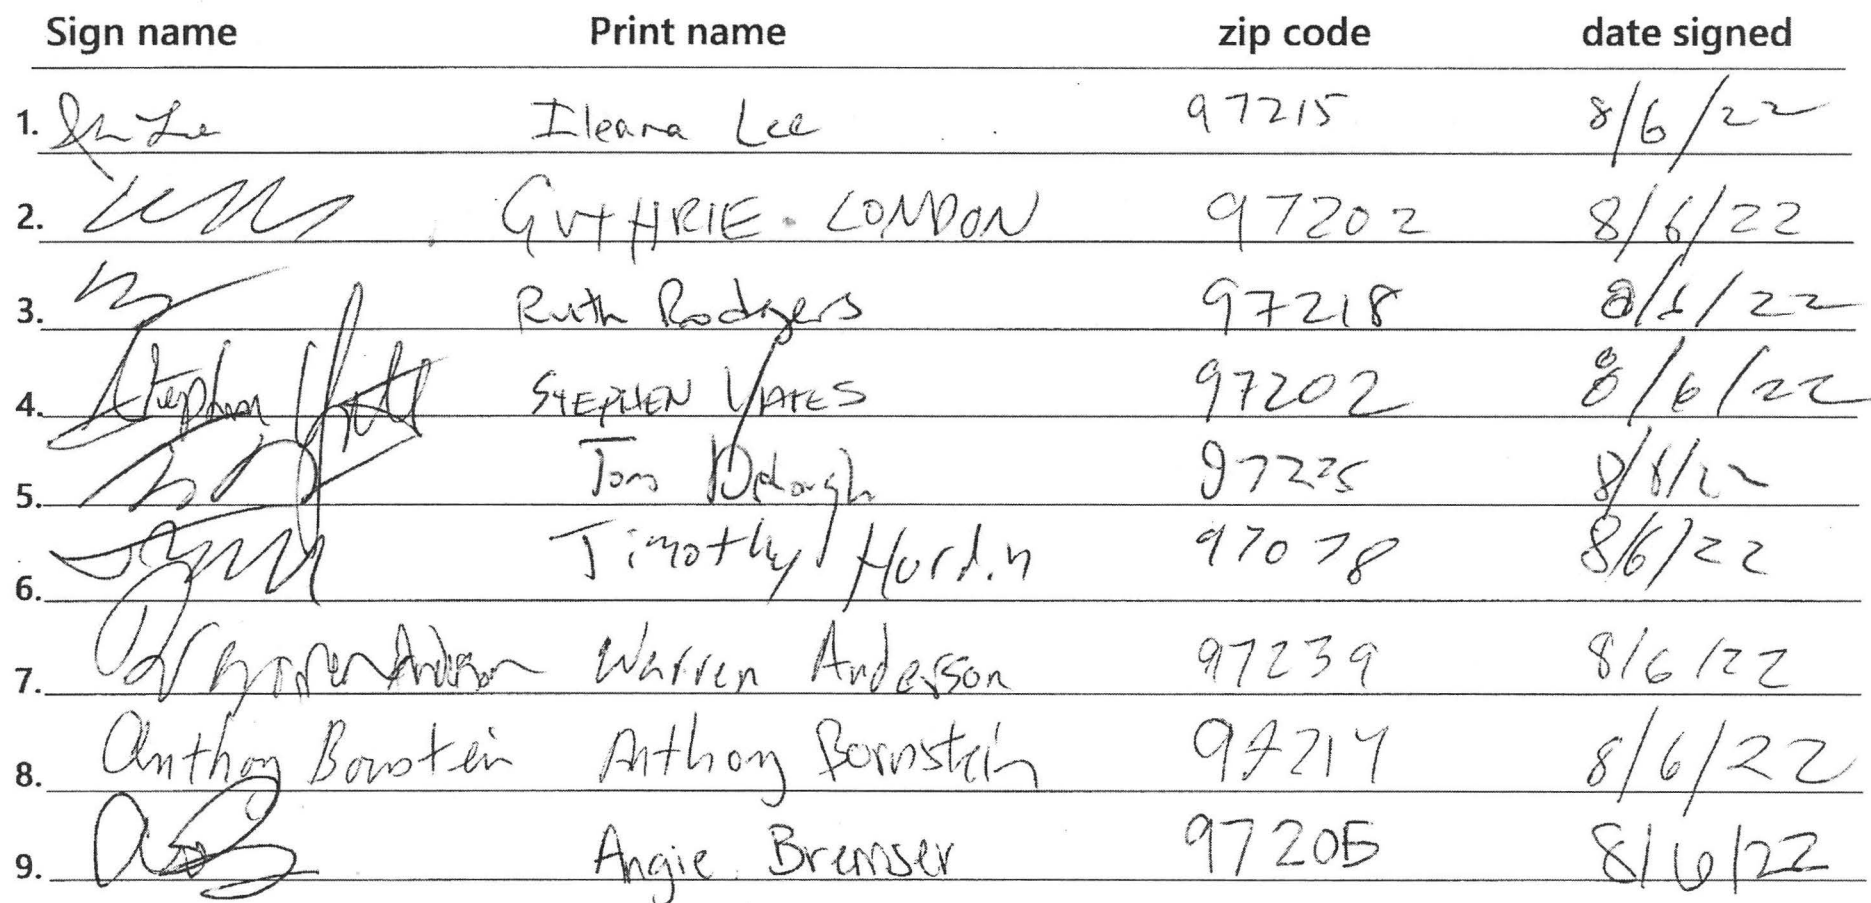 Sign name Print name zip code date signed
1. Ileana Lee 97215 8/6/22
2. GUTHRIE LONDON 97202 8/6/22
3. Ruth Rodgers 97218 8/6/22
4. Stephen STEPHEN YATES 97202 8/6/22
5. Tom 97225 8/6/22
6. Timothy Hardin 97078 8/6/22
7. Warren Anderson Warren Anderson 97239 8/6/22
8. Anthony Bornstein Anthony Bornstein 97214 8/6/22
9. Angie Bremser 97205 8/6/22